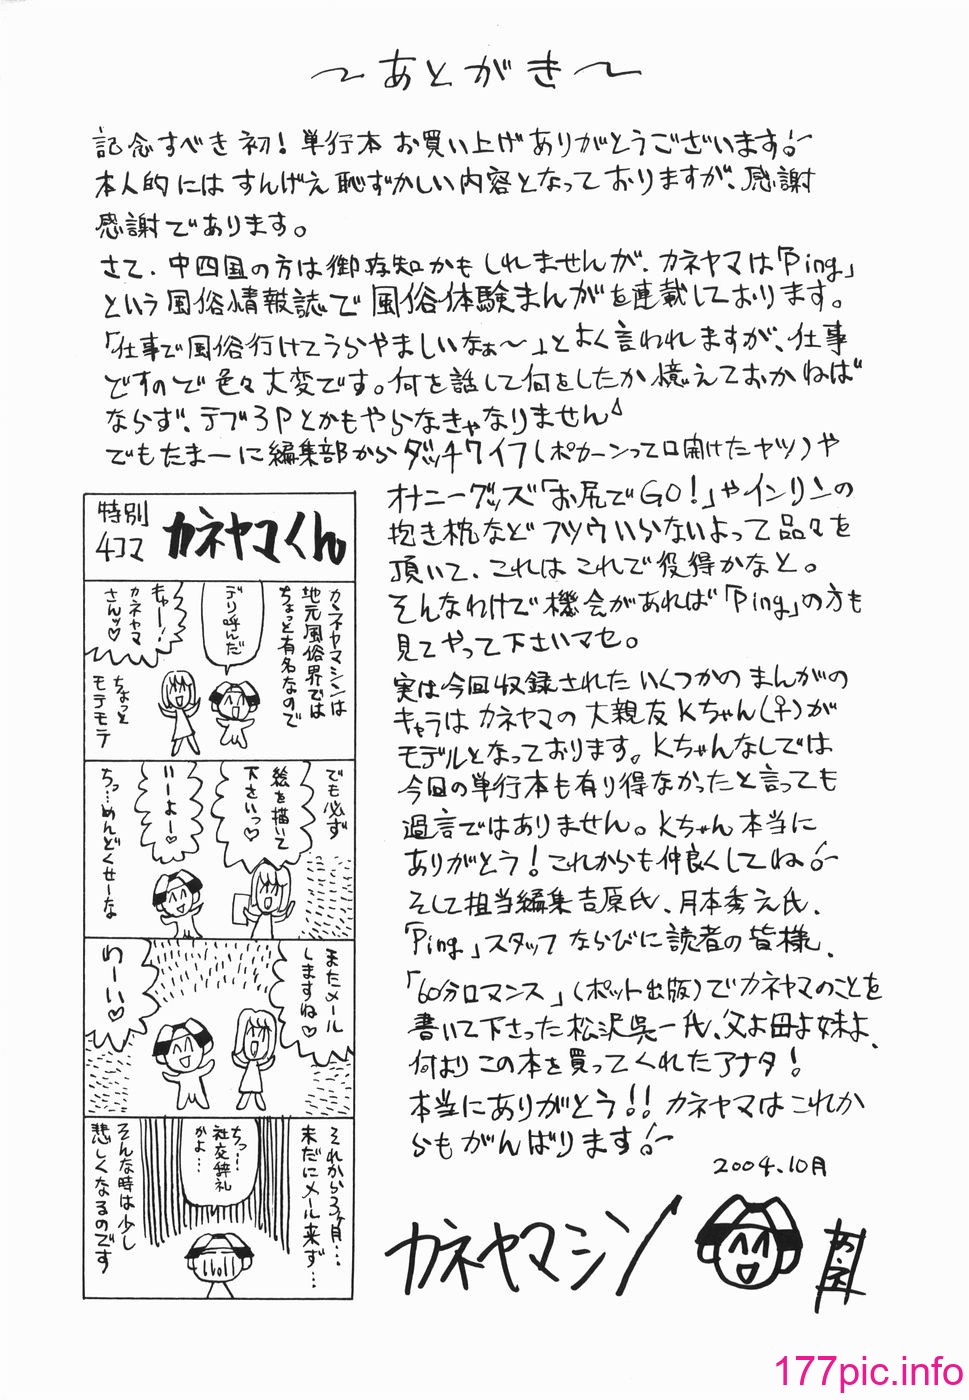 〜あとがき〜
記念すべき初！単行本お買い上げありがとうございます！
本人的にはすんげえ恥ずかしい内容となっておりますが、感謝
感謝であります。
さて、中四国の方は御存知かもしれませんが、カネヤマは「Ping」
という風俗情報誌で風俗体験まんがを連載しております。
「仕事で風俗行けてうらやましいなぁ〜」とよく言われますが、仕事
ですので色々大変です。何を話して何をしたか憶えておかねば
ならず、デブ3Pとかもやらなきゃなりません
でもたまーに編集部からダッチワイフ(ポカーンって口開けたヤツ)や
オナニーグッズ「お尻でGO！」やインリンの
抱き枕などフツウいらないよって品々を
頂いて、これはこれで役得かなと。
そんなわけで機会があれば「Ping」の方も
見てやって下さいマセ。
実は今回収録されたいくつかのまんがの
キャラはカネヤマの大親友Kちゃん(♀)が
モデルとなっております。Kちゃんなしでは
今回の単行本も有り得なかったと言っても
過言ではありません。Kちゃん本当に
ありがとう！これからも仲良くしてね！
そして担当編集吉原氏、月本秀元氏、
「Ping」スタッフならびに読者の皆様、
「60分ロマンス」(ポット出版)でカネヤマのことを
書いて下さった松沢呉一氏、父よ母よ妹よ、
何よりこの本を買ってくれたアナタ！
本当にありがとう！！カネヤマはこれか
らもがんばります！
2004.10月
カネヤマシン
特別
4コマ
カネヤマくん
カネヤマシンは
地元風俗界では
ちょっと有名なので
デリ呼んだ
きゃー！
カネヤマ
さんッ♡
ちょっと
モテモテ
でも必ず
絵を描いて
下さいっ♡
いーよー♡
ちっ…めんどくせーな
またメール
しますね♡
わーい♡
それから3ヶ月…
未だにメール来ず…
ちっ…
社交辞礼
かよ…
そんな時は少し
悲しくなるのです
177pic.info